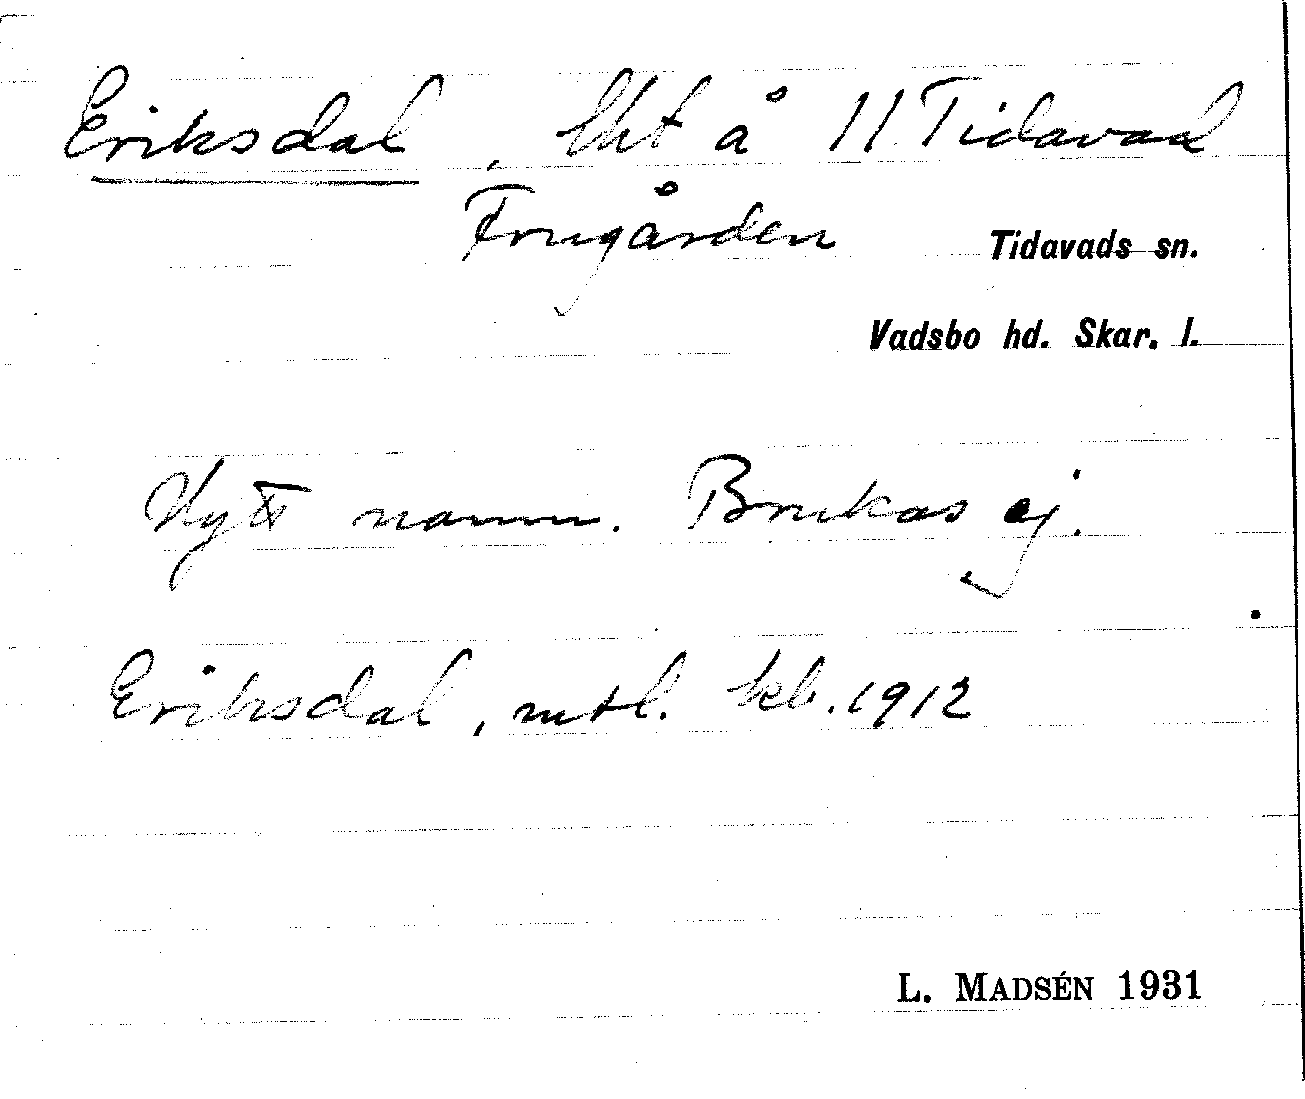 Eriksdal, lht å 11 Tidavad
Frugården
Tidavads sn.
Vadsbo hd. Skar. l.
Nytt namn. Brukas ej.
Eriksdal, mtl. kb. 1912
L. MADSÉN 1931